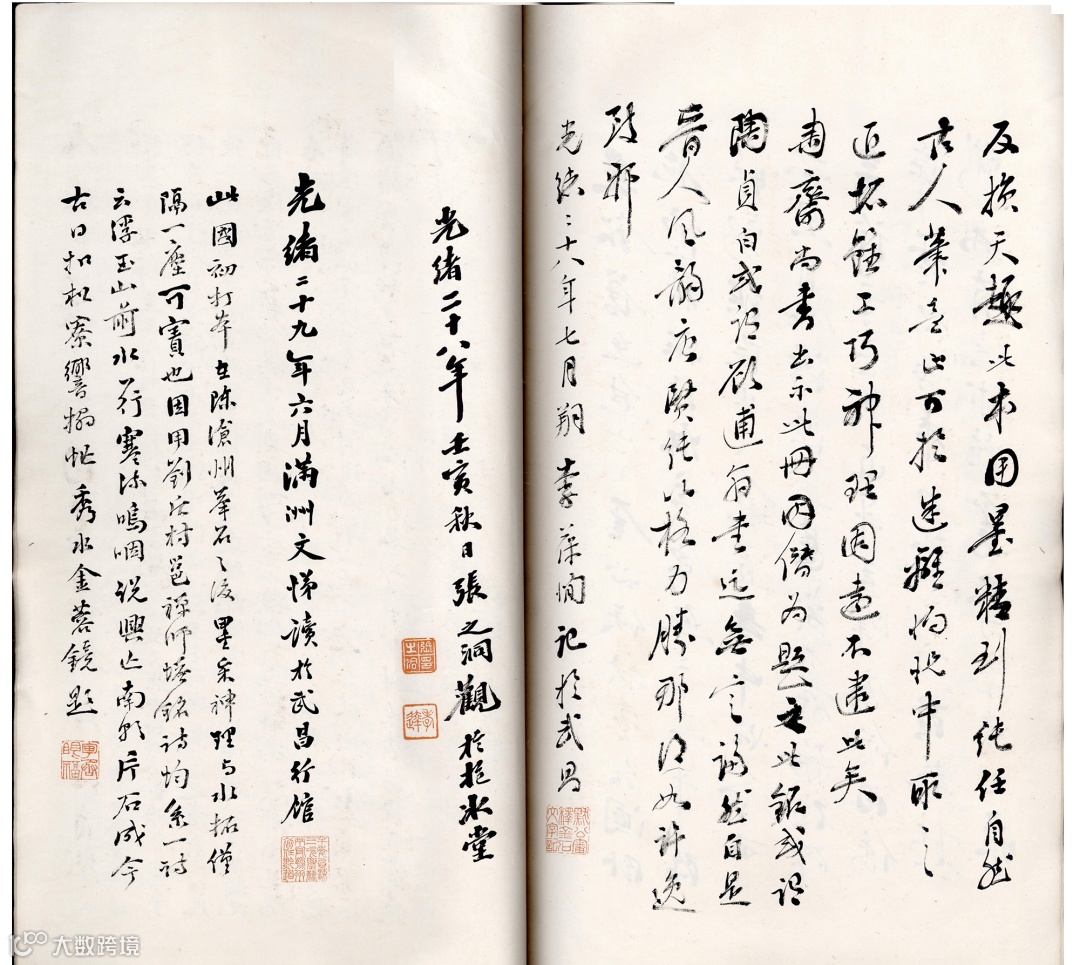 反損天趣此本用墨精到純任自然
古人筆意止可於迷離惝恍中取之
近拓雖工巧神理固遠不逮此矣
匋齋尚書出示此冊因僭為題之此銘或謂
陶貞白或謂顧逋翁書迄無定論然自是
晉人風韻唐賢純以格力勝那得如許逸
致邪
光緒二十八年七月朔李葆恂記於武昌
光緒二十八年壬寅秋日張之洞觀於抱冰堂
光緒二十九年六月滿洲文悌讀於武昌行館
此國初打本在陳滄州辇石之後墨采神理与水拓僅
隔一塵可寶也因用劉後村邕禪師塔銘詩均系一詩
云浮玉山前水行寒流嗚咽說興亡南朝片石成今
古日扣松寮響搨忙 秀水金蓉鏡題